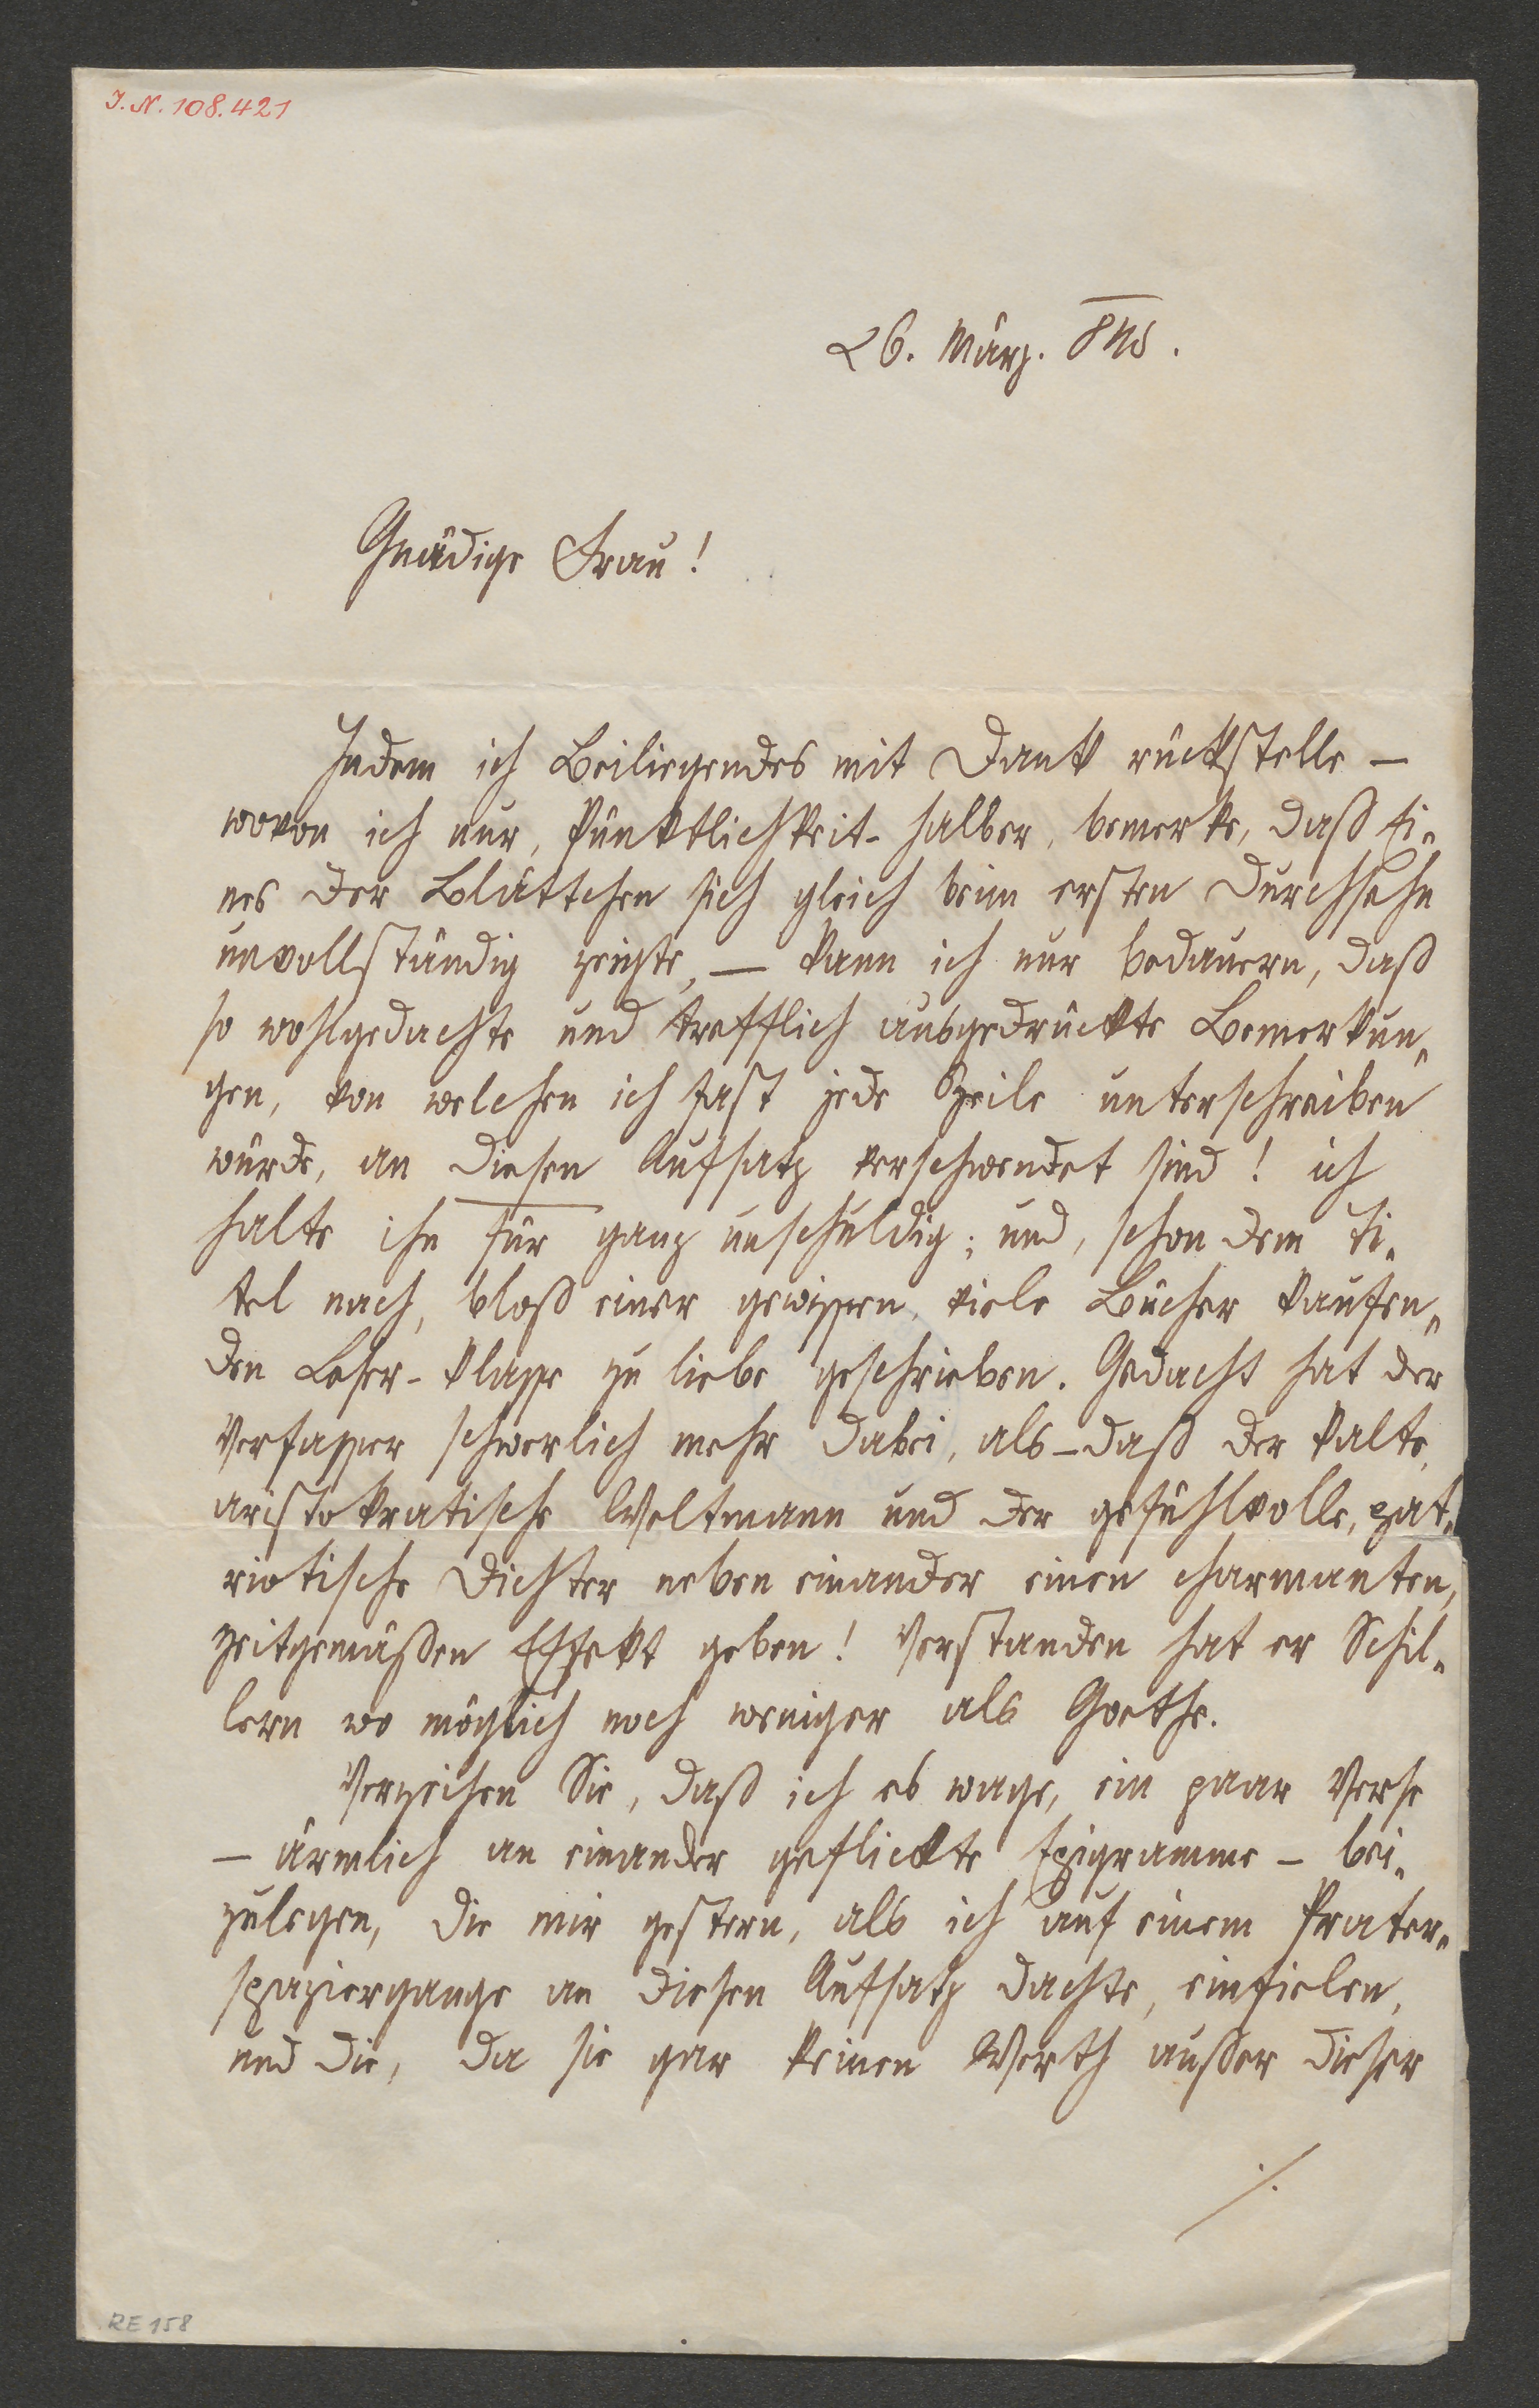 I.N. 108.421
26. März. 840.
Gnädige Frau!
Indem ich Beiliegendes mit Dank rückstelle –
wovon ich nur, Pünktlichkeit-halber, bemerke, daß Ei„
nes der Blättchen sich gleich beim ersten Durchsehn
unvollständig zeigte, – kann ich nur bedauern, daß
so wohlgedachte und trefflich ausgedrückte Bemerkun„
gen, von welchen ich fast jede Zeile unterschreiben
würde, an diesen Aufsatz verschwendet sind! ich
halte ihn für ganz unschuldig; und, schon dem Ti„
tel nach, bloß einer gewissen, viele Bücher kaufen„
den Leser-Klasse zu liebe geschrieben. Gedacht hat der
Verfasser schwerlich mehr dabei, als – daß der kalte,
aristokratische Weltmann und der gefühlvolle, pat„
riotische Dichter neben einander einen charmanten,
zeitgemäßen Effekt geben! Verstanden hat er Schil„
lern wo möglich noch weniger als Goethe.
Verzeihen Sie, daß ich es wage, ein paar Verse
– ärmlich an einander geflickte Epigramme – bei„
zulegen, die mir gestern, als ich auf einem Prater„
spaziergange an diesen Aufsatz dachte, einfielen,
und die, da sie gar keinen Werth außer dieser
./.
RE 158